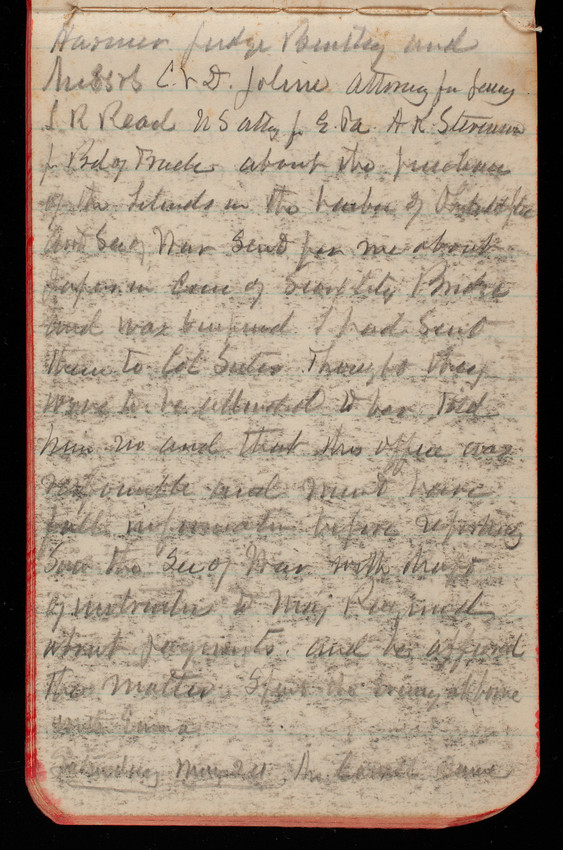 Harmer Judge Bentley and
Messrs C. & D. Joline attorney for penny
S R Read U S atty for E. Pa. A R Stevenson
for Bd of Trade about the purchase
of the Islands in the harbor of
and Sec of War sent for me about
papers in Case of Sioux City Bridge
and was surprised I had sent
them to Col Suter. Thought they
were to be attended to here Told
him no and that this office was
responsible and must have
full information before reporting
Saw the Sec of War with draft
of instruction to Maj Raymond
about payments. and he approved
the matter. Spent the evening at home
with Emma
Saturday May 24. Mr. came